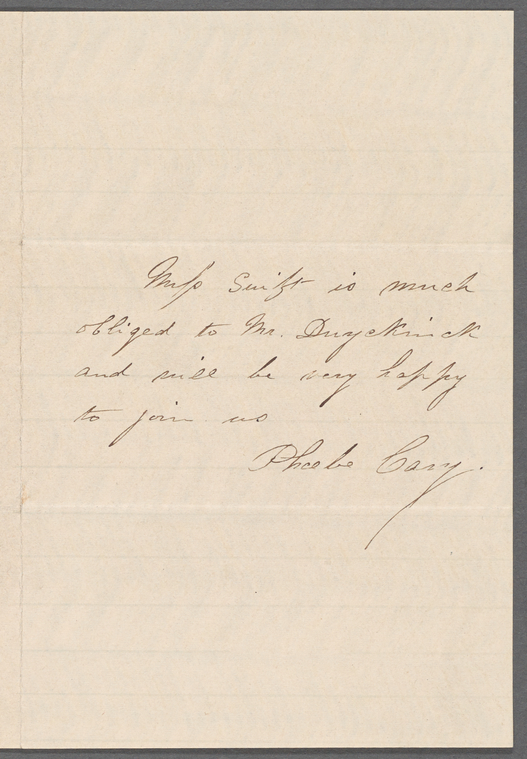 Miss Swift is much
obliged to Mr. Duyckinck
and will be very happy
to join us
Phoebe Cary.